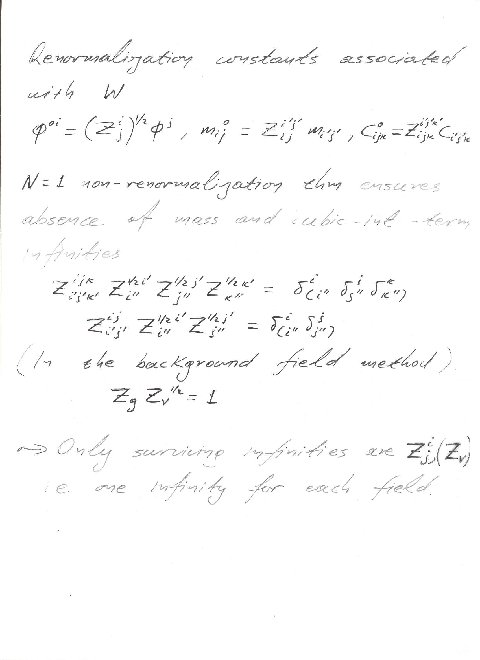 Renormalization constants associated
with W
φ^{oi} = (Z^i_j)^{1/2} φ^j , m^o_{ij} = Z^{i'j'}_{ij} m_{i'j'} , C^o_{ijk} = Z^{i'j'k'}_{ijk} C_{i'j'k'}
N=1 non-renormalization thm ensures
absence of mass and cubic-int-term
infinities
Z^{ijk}_{i'j'k'} Z^{1/2 i'}_{i''} Z^{1/2 j'}_{j''} Z^{1/2 k'}_{k''} = δ^i_{(i''} δ^j_{j''} δ^k_{k'')}
Z^{ij}_{i'j'} Z^{1/2 i'}_{i''} Z^{1/2 j'}_{j''} = δ^i_{(i''} δ^j_{j'')}
(In the background field method)
Z_g Z_v^{1/2} = 1
→ Only surviving infinities are Z^i_j, (Z_v)
i.e. one infinity for each field.